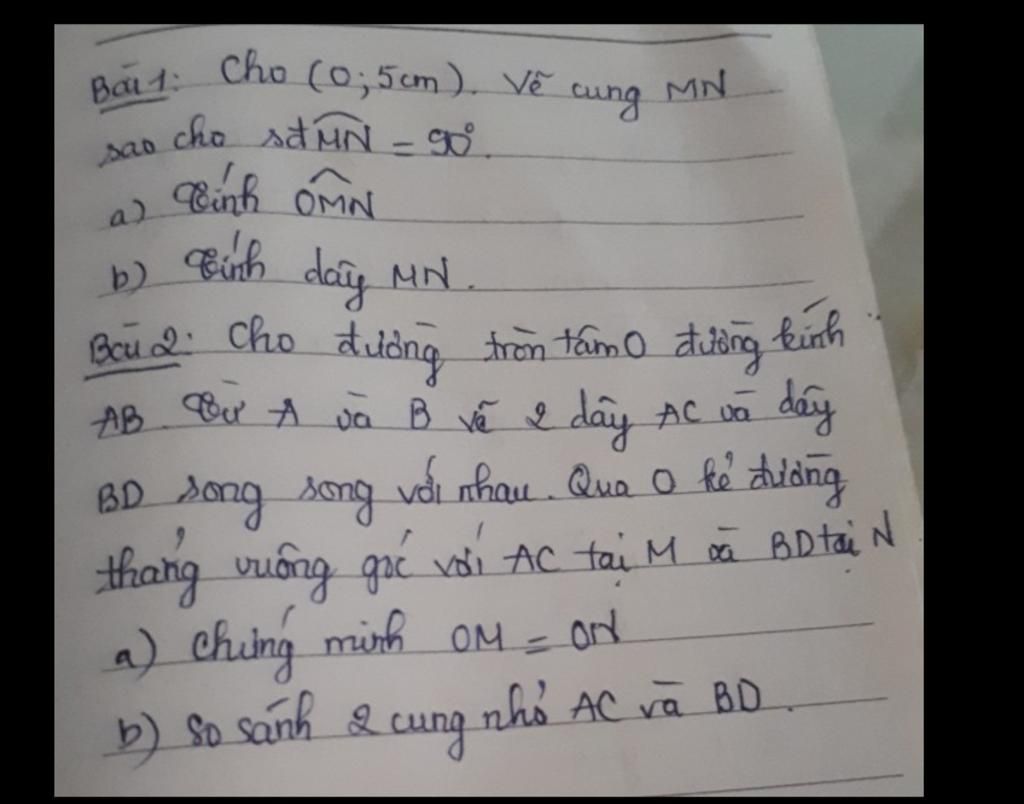 Bài 1: Cho (O; 5cm). Vẽ cung MN
sao cho sđMN̂ = 90°.
a) Tính OMN̂
b) Tính dây MN.
Bài 2: Cho đường tròn tâm O đường kính
AB. Từ A và B vẽ 2 dây AC và dây
BD song song với nhau. Qua O kẻ đường
thẳng vuông góc với AC tại M và BD tại N
a) Chứng minh OM = ON
b) So sánh 2 cung nhỏ AC và BD.